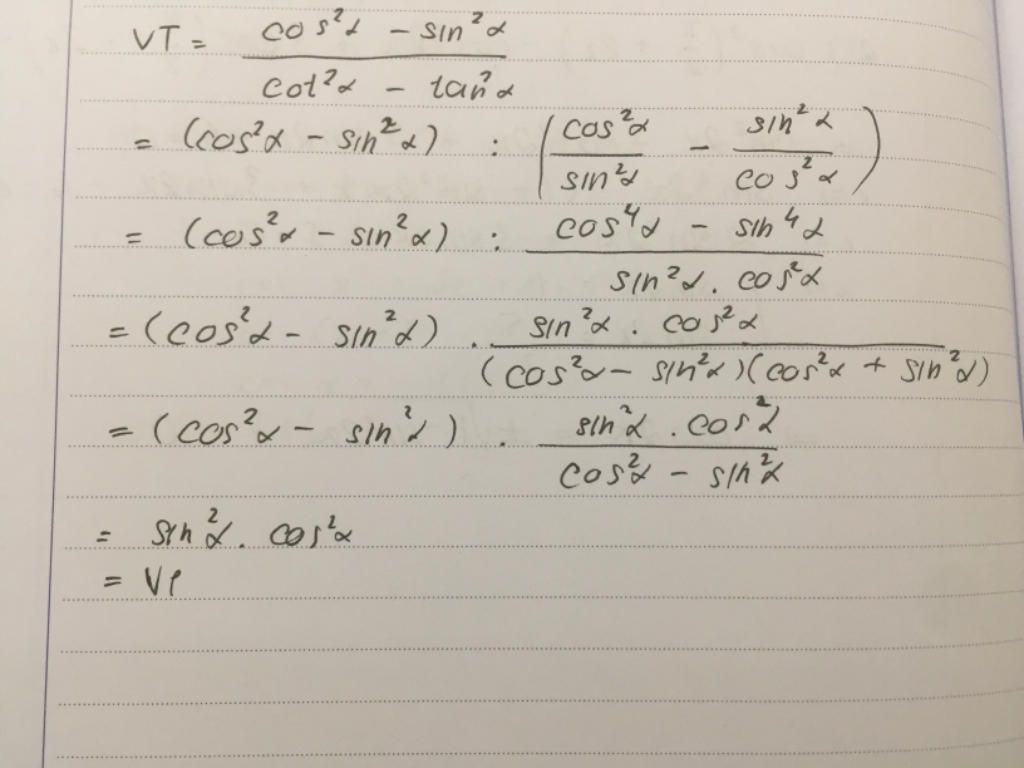 VT = (cos²α - sin²α) / (cot²α - tan²α)
= (cos²α - sin²α) : (cos²α / sin²α - sin²α / cos²α)
= (cos²α - sin²α) : (cos⁴α - sin⁴α) / (sin²α . cos²α)
= (cos²α - sin²α) . (sin²α . cos²α) / ((cos²α - sin²α)(cos²α + sin²α))
= (cos²α - sin²α) . (sin²α . cos²α) / (cos²α - sin²α)
= sin²α . cos²α
= VP